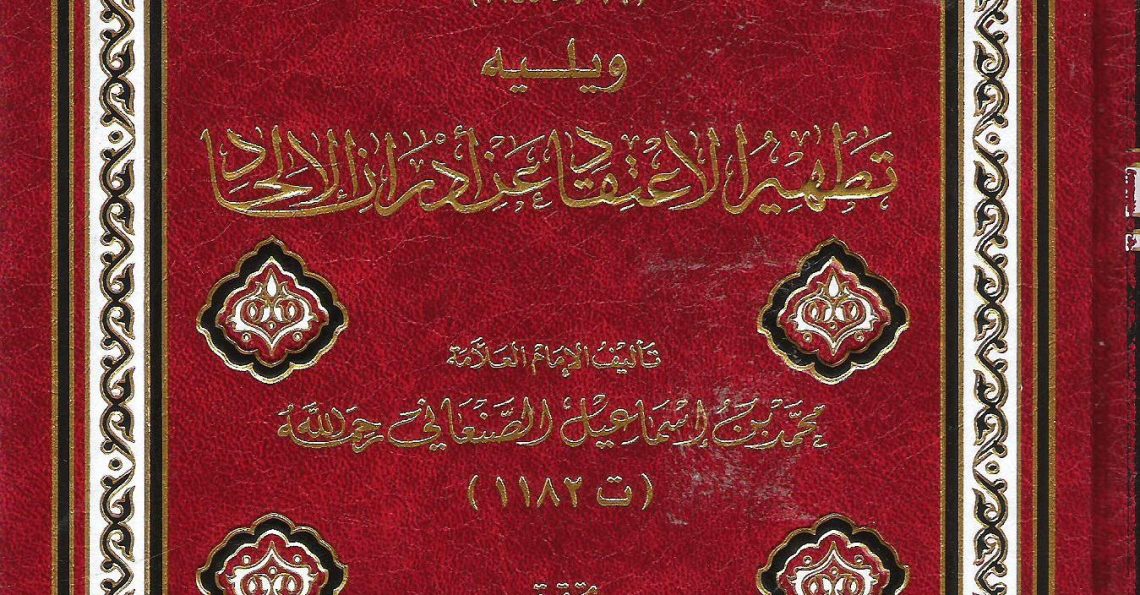 ويليه
تطهير الاعتقاد عن أدران الإلحاد
تأليف الإمام العلامة
محمد بن إسماعيل الصنعاني رحمه الله
(ت ١١٨٢)